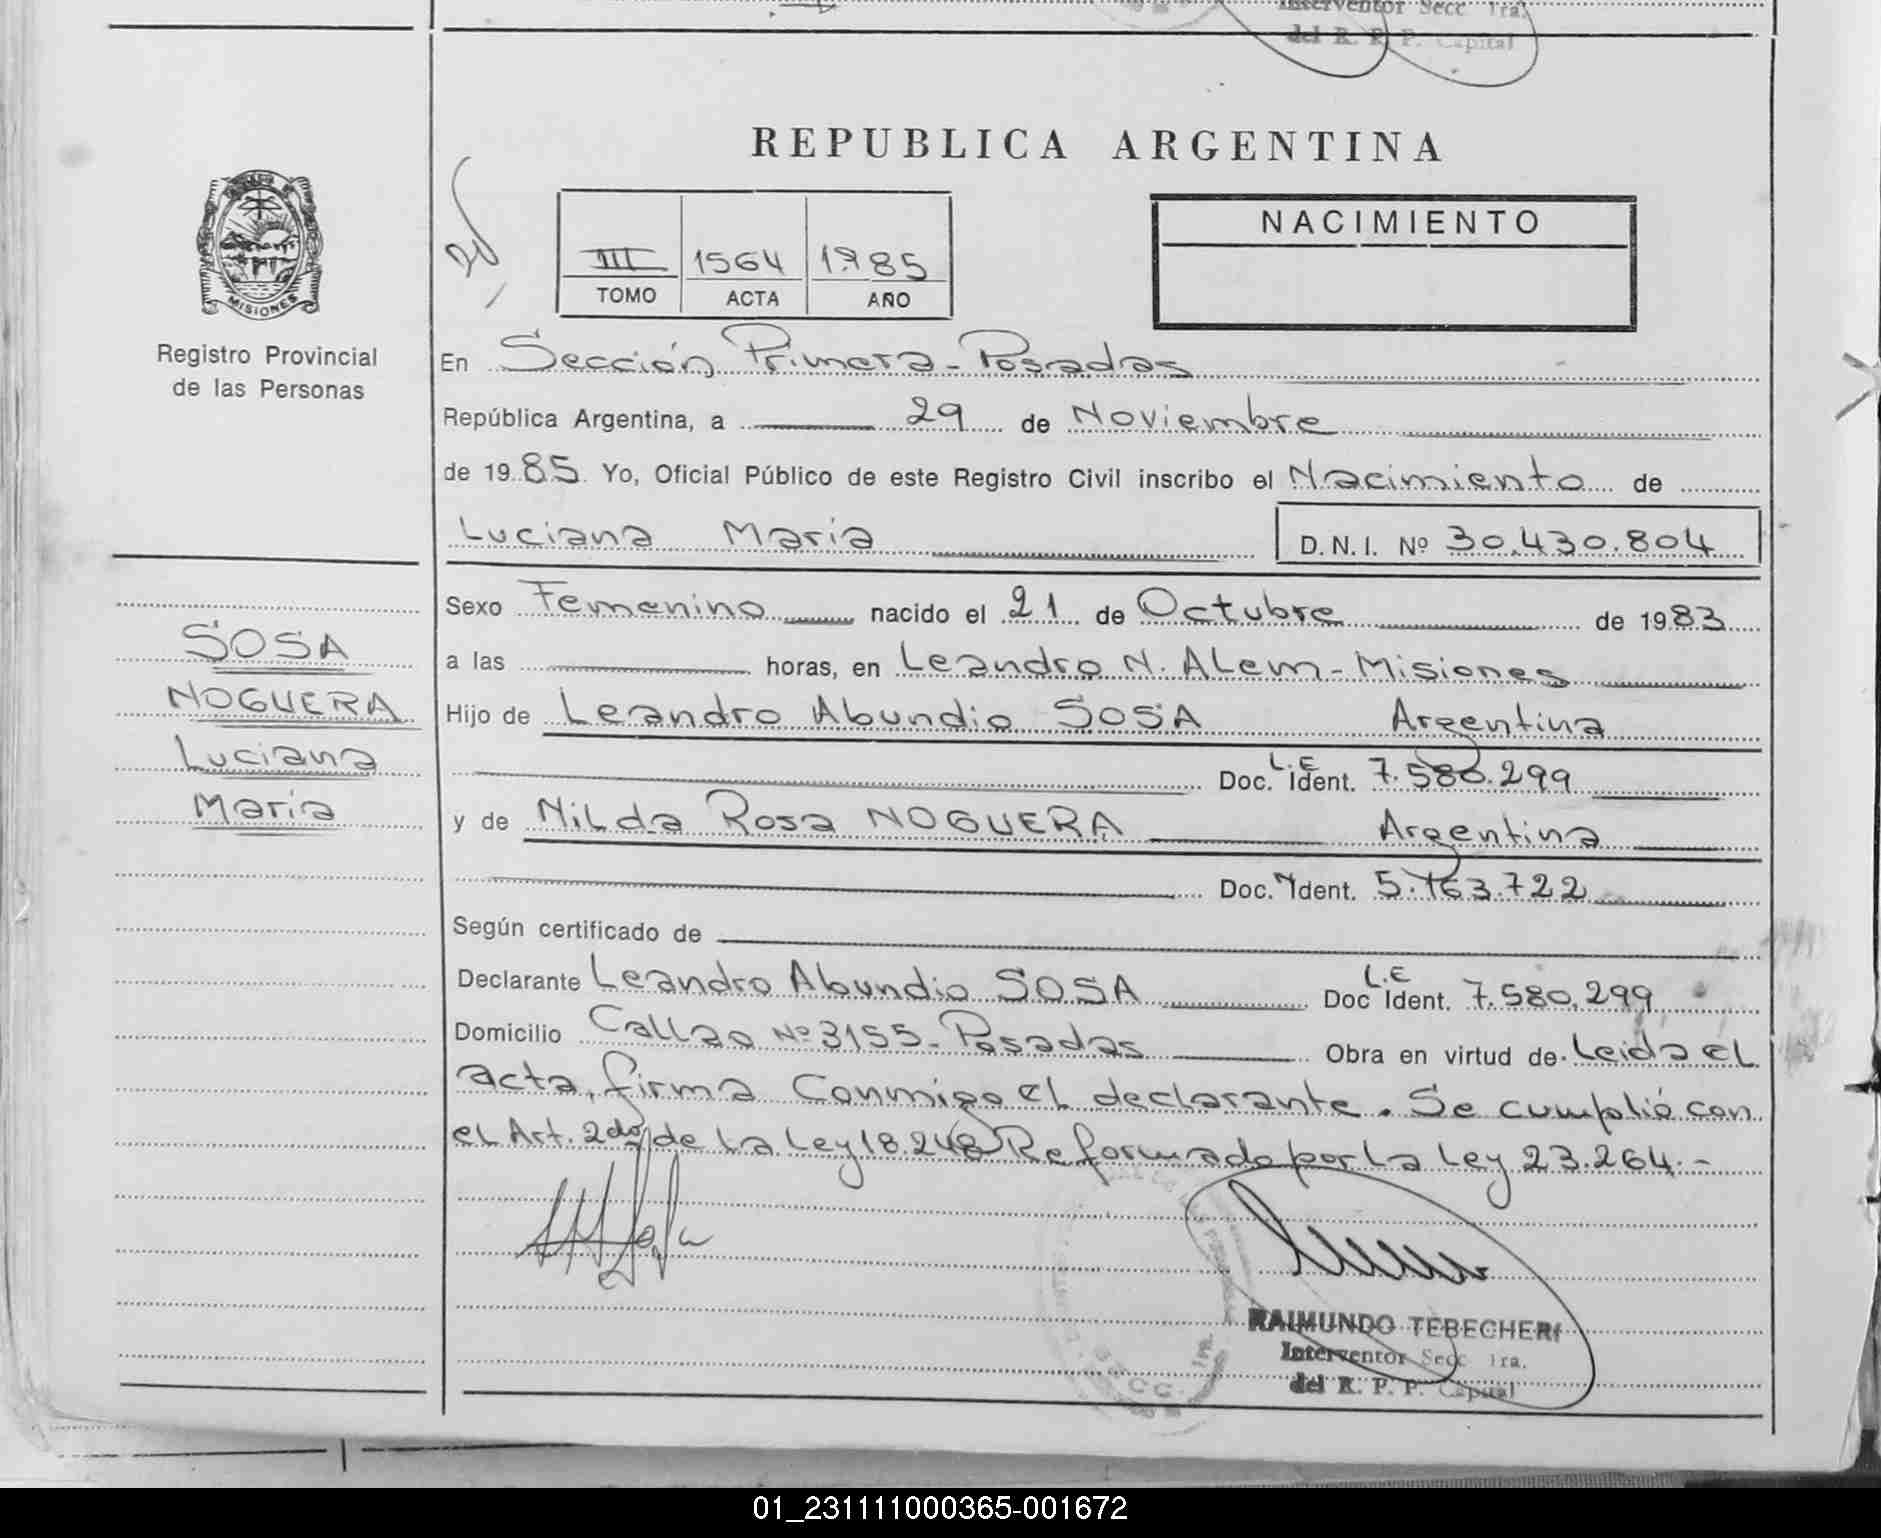 Interventor Secc 1ra.
del R. P. P. Capital
REPUBLICA ARGENTINA
MISIONES
Registro Provincial
de las Personas
III 1564 1985
TOMO ACTA AÑO
NACIMIENTO
En Sección Primera - Posadas
República Argentina, a 29 de Noviembre
de 1985 Yo, Oficial Público de este Registro Civil inscribo el Nacimiento de
Luciana María D.N.I. Nº 30.430.804
SOSA
NOGUERA
Luciana
María
Sexo Femenino nacido el 21 de Octubre de 1983
a las horas, en Leandro N. Alem - Misiones
Hijo de Leandro Abundio SOSA Argentina
Doc. Ident. L.E 7.580.299
y de Nilda Rosa NOGUERA Argentina
Doc. Ident. 5.163.722
Según certificado de
Declarante Leandro Abundio SOSA Doc Ident. L.E 7.580.299
Domicilio Callao Nº 3155 - Posadas Obra en virtud de Leida el
acta, firma Conmigo el declarante. Se cumplió con
el Art. 2do de la Ley 18.248 Reformado por la Ley 23.264.-
RAIMUNDO TEBECHERI
Interventor Secc 1ra.
del R. P. P. Capital
01_231111000365-001672